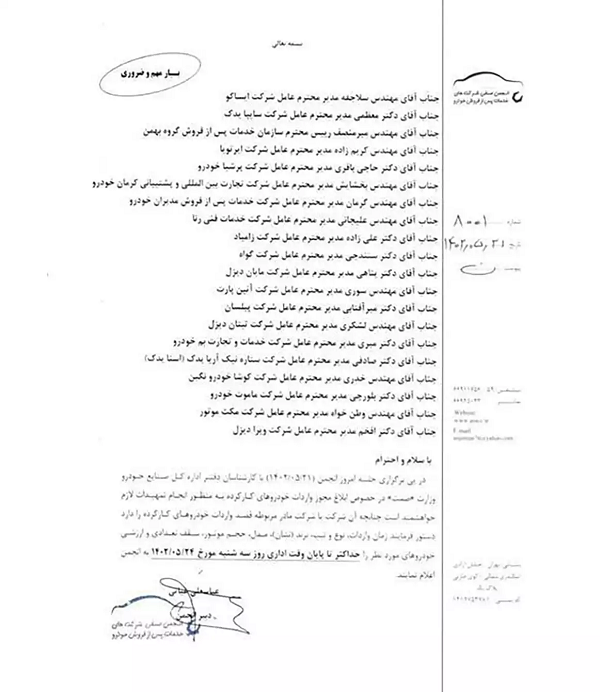 بسمه تعالی
بسیار مهم و ضروری
انجمن صنفی شرکت های
خدمات پس از فروش خودرو
جناب آقای مهندس سلاجقه مدیر محترم عامل شرکت ایساکو
جناب آقای دکتر معظمی مدیر محترم عامل شرکت سایپا یدک
جناب آقای مهندس میرمنصف رییس محترم سازمان خدمات پس از فروش گروه بهمن
جناب آقای مهندس کریم زاده مدیر محترم عامل شرکت ایرتویا
جناب آقای دکتر حاجی باقری مدیر محترم عامل شرکت پرشیا خودرو
جناب آقای مهندس بخشایش مدیر محترم عامل شرکت تجارت بین المللی و پشتیبانی کرمان خودرو
جناب آقای مهندس گرمان مدیر محترم عامل شرکت خدمات پس از فروش مدیران خودرو
جناب آقای مهندس علیجانی مدیر محترم عامل شرکت خدمات فنی رنا
جناب آقای دکتر علی زاده مدیر محترم عامل شرکت زامیاد
جناب آقای دکتر سنندجی مدیر محترم عامل شرکت گواه
جناب آقای دکتر پناهی مدیر محترم عامل شرکت مایان دیزل
جناب آقای مهندس سوری مدیر محترم عامل شرکت آتین پارت
جناب آقای دکتر میرآفتابی مدیر محترم عامل شرکت پیلسان
جناب آقای مهندس لشگری مدیر محترم عامل شرکت تیتان دیزل
جناب آقای دکتر میری مدیر محترم عامل شرکت خدمات و تجارت بم خودرو
جناب آقای دکتر صادقی مدیر محترم عامل شرکت ستاره نیک آریا یدک (استا یدک)
جناب آقای مهندس خدری مدیر محترم عامل شرکت کوشا خودرو نگین
جناب آقای دکتر بلورچی مدیر محترم عامل شرکت ماموت خودرو
جناب آقای مهندس وطن خواه مدیر محترم عامل شرکت مکث موتور
جناب آقای دکتر افخم مدیر محترم عامل شرکت ویرا دیزل
شماره ۸۰۰۱
تاریخ ۱۴۰۲،۰۵،۲۱
Website:
E-mail:
با سلام و احترام
در پی برگزاری جلسه امروز انجمن (۱۴۰۲/۰۵/۲۱) با کارشناسان دفتر اداره کل صنایع خودرو
وزارت «صمت» در خصوص ابلاغ مجوز واردات خودروهای کارکرده به منظور انجام تمهیدات لازم
خواهشمند است چنانچه آن شرکت یا شرکت مادر مربوطه قصد واردات خودروهای کارکرده را دارد
دستور فرمایند زمان واردات، نوع و تیپ، برند (نشان)، مدل، حجم موتور، سقف تعدادی و ارزشی
خودروهای مورد نظر را حداکثر تا پایان وقت اداری روز سه شنبه مورخ ۱۴۰۲/۰۵/۲۴ به انجمن
اعلام نمایند.
دبیر انجمن
انجمن صنفی شرکت های
خدمات پس از فروش خودرو